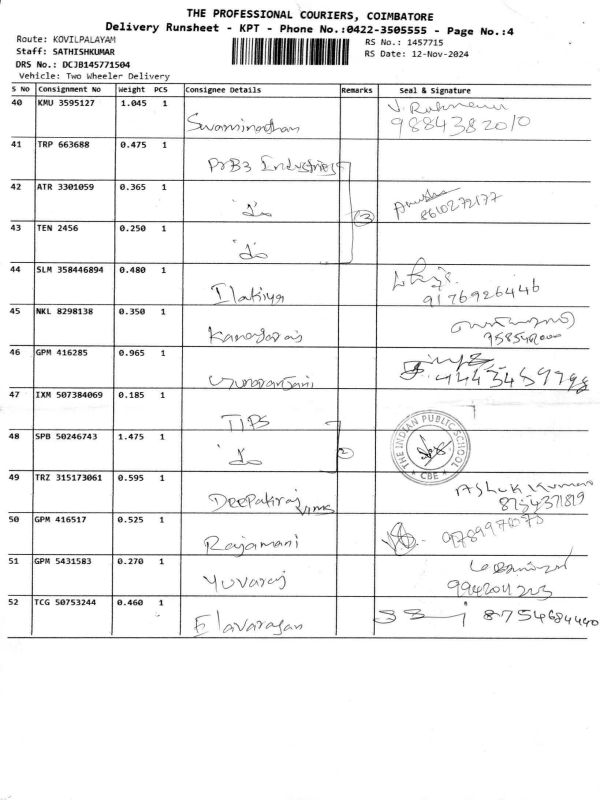 THE PROFESSIONAL COURIERS, COIMBATORE
Delivery Runsheet - KPT - Phone No.:0422-3505555 - Page No.:4
Route: KOVILPALAYAM
RS No.: 1457715
Staff: SATHISHKUMAR
RS Date: 12-Nov-2024
DRS No.: DCJB145771504
Vehicle: Two Wheeler Delivery
S No Consignment No Weight PCS Consignee Details Remarks Seal & Signature
40 KMU 3595127 1.045 1 Swaminathan 9884382010
41 TRP 663688 0.475 1 PrB3 Industries
42 ATR 3301059 0.365 1 do 3 8610272177
43 TEN 2456 0.250 1 do
44 SLM 358446894 0.480 1 Ilakiya 9176926446
45 NKL 8298138 0.350 1 Kanagaraj
46 GPM 416285 0.965 1
47 IXM 507384069 0.185 1 TIPS
48 SPB 50246743 1.475 1 do 2 THE INDIAN PUBLIC SCHOOL CBE
49 TRZ 315173061 0.595 1 Deepakraj Ashok Kumar
50 GPM 416517 0.525 1 Rajamani
51 GPM 5431583 0.270 1 Yuvaraj
52 TCG 50753244 0.460 1 Elavarasan 8754684440